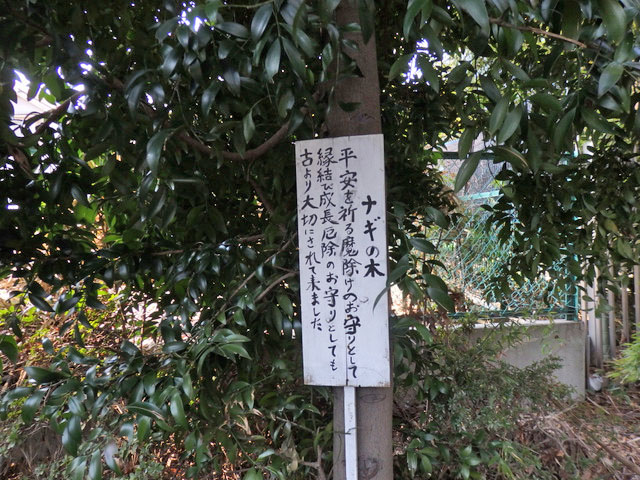 ナギの木
平安を祈る魔除けのお守りとして
縁結び成長厄除のお守りとしても
古より大切にされて来ました